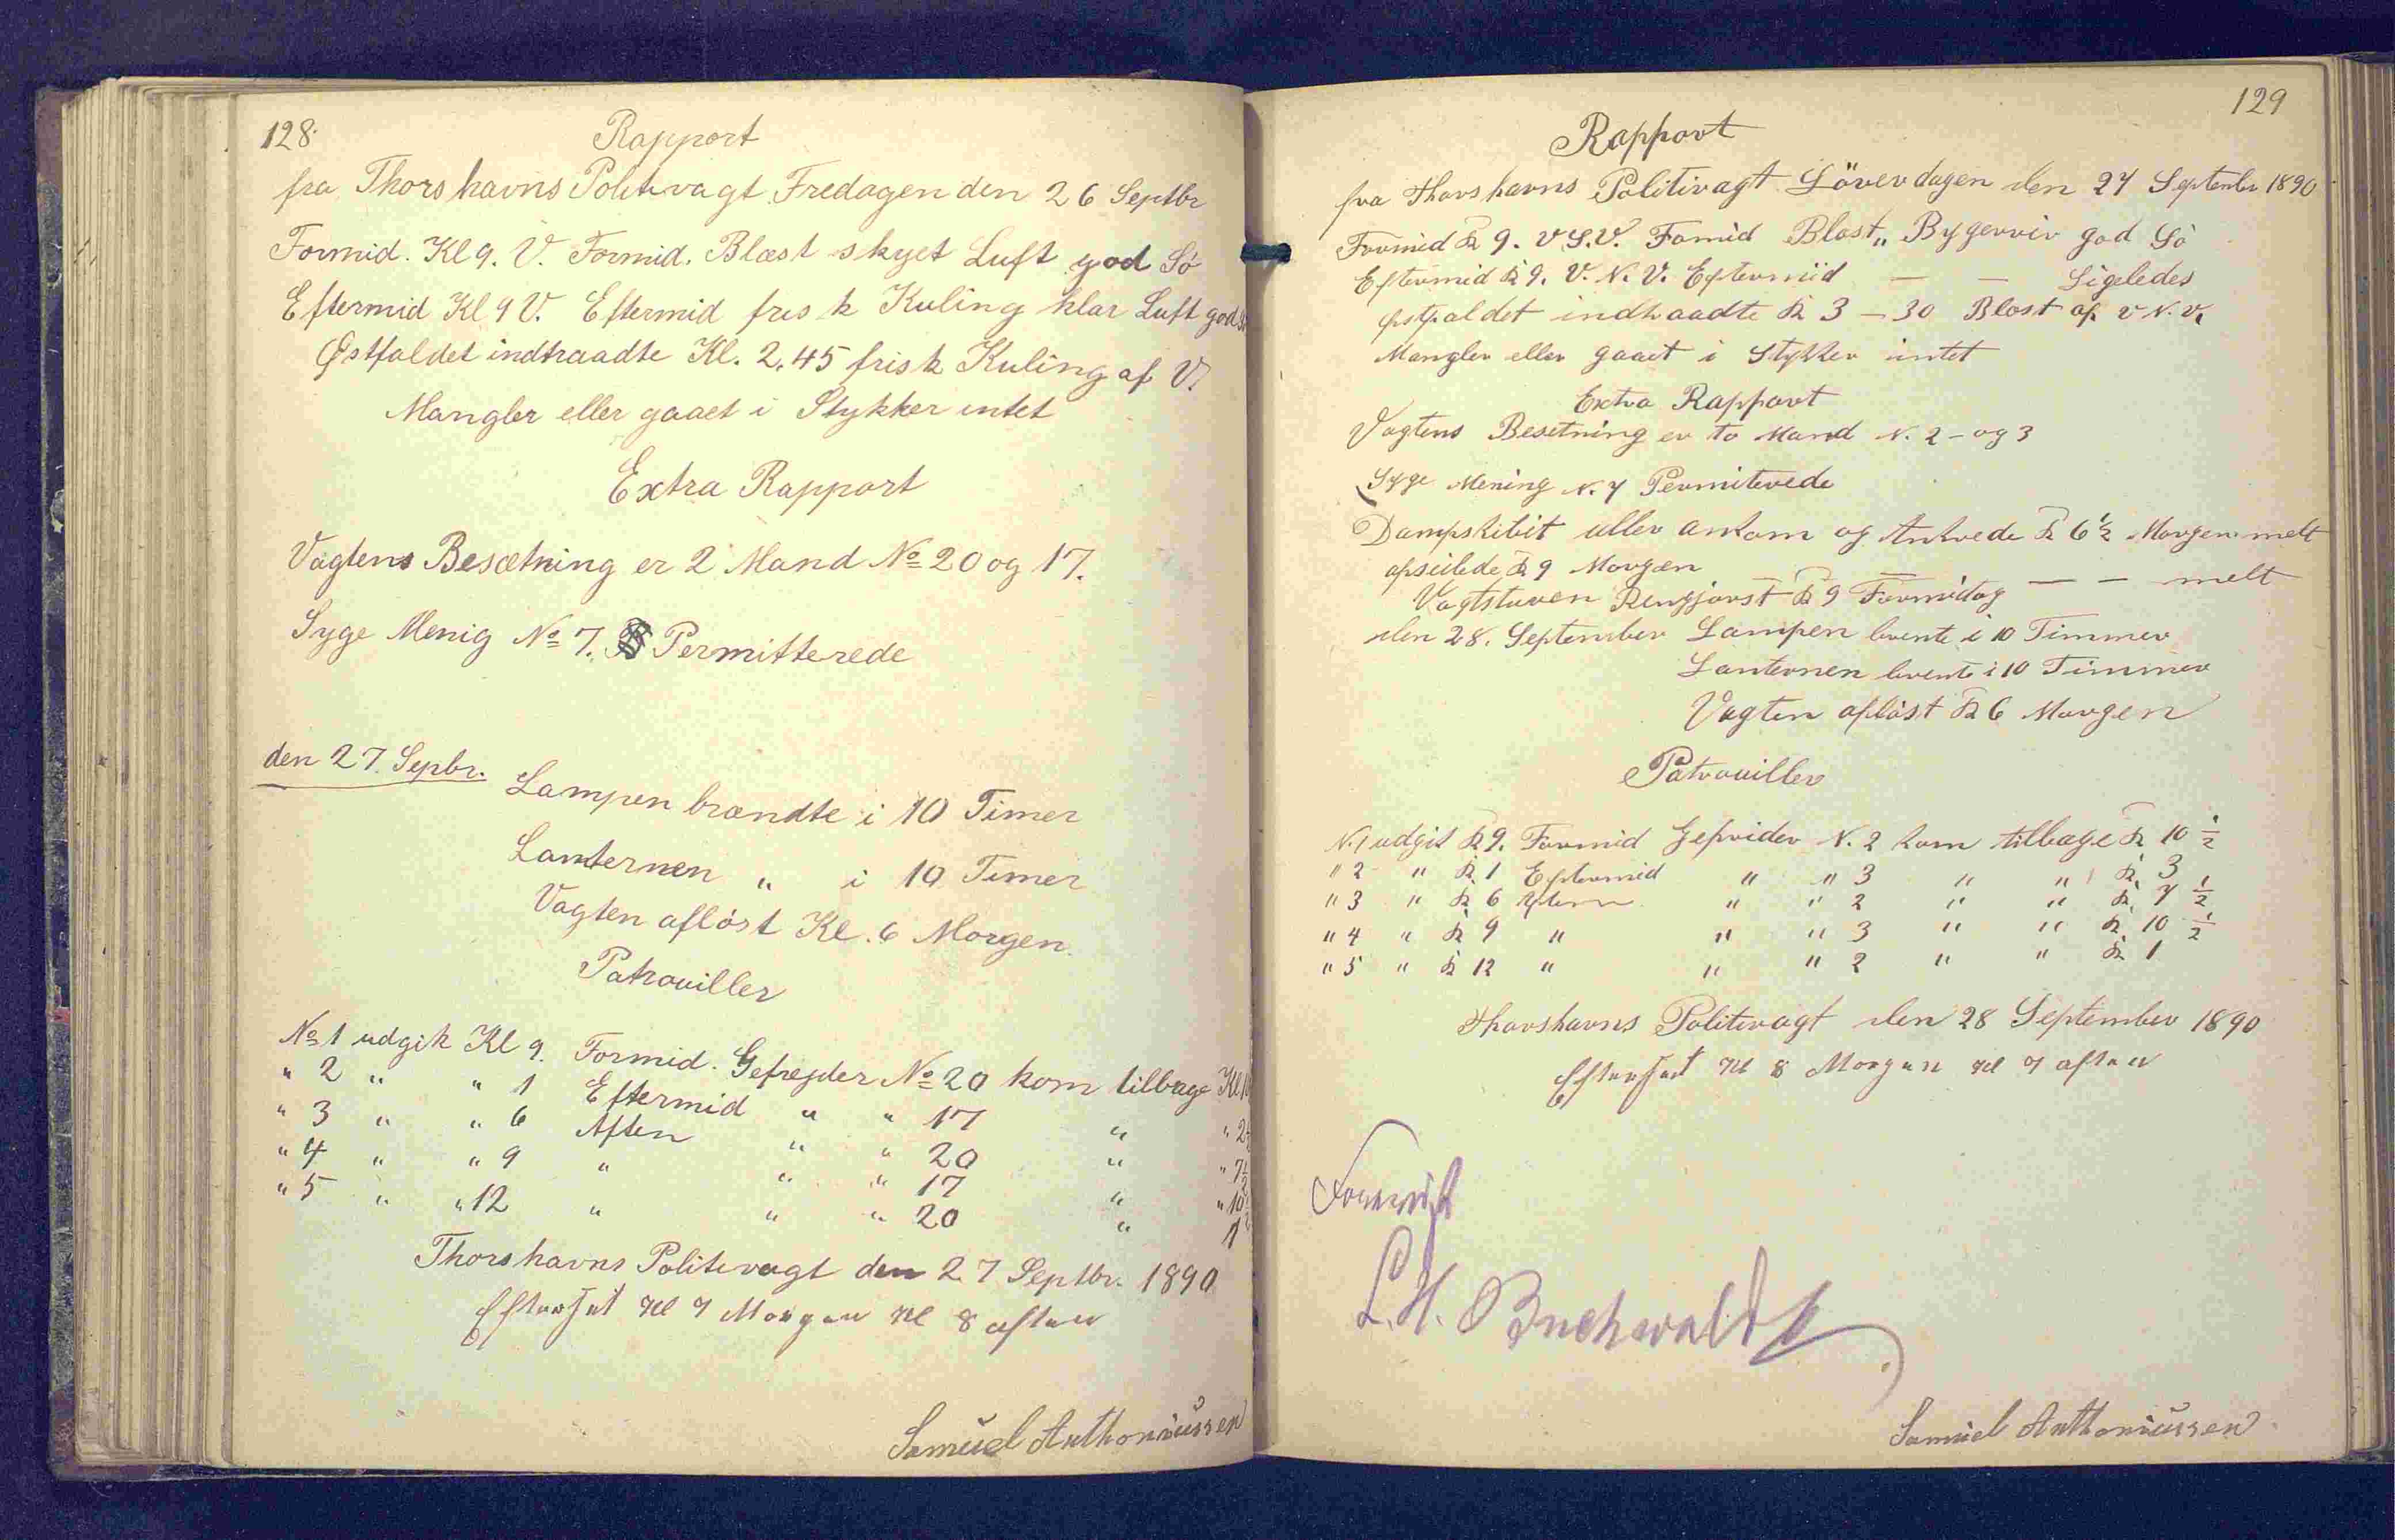 128.
Rapport
fra Thorshavns Politivagt Fredagen den 26 Septbr
Formid. Kl 9. V. Formid. Blæst skyet Luft god Sö
Eftermid Kl 9 V. Eftermid frisk Kuling klar Luft god Sö
Østfaldet indtraadte Kl. 2.45 frisk Kuling af V.
Mangler eller gaaet i Stykker intet
Extra Rapport
Vagtens Besætning er 2 Mand No 20 og 17.
Syge Menig No 7. Permitterede
den 27. Sepbr.
Lampen brændte i 10 Timer
Lanternen " i 10 Timer
Vagten aflöst Kl. 6 Morgen.
Patrouiller
No 1 udgik Kl 9. Formid. Gefrejder No 20 kom tilbage Kl
" 2 " " 1 Eftermid " " 17 " " 2½
" 3 " " 6 Aften " " 20 " " 7½
" 4 " " 9 " " " 17 " " 10½
" 5 " " 12 " " " 20 " 1
Thorshavns Politivagt den 27 Septbr. 1890
Efterset Kl 7 Morgen Kl 8 aften
Samuel Anthoniussen
129
Rapport
fra Thorshavns Politivagt Löverdagen den 27 September 1890
Formid Kl 9. V.S.V. Fomid Blast " Bygervir god Sö
Eftermid Kl 9. V. N. V. Eftermid — — Ligeledes
östfaldet indtraadte Kl 3 - 30 Blast af V. N. V.
Mangler eller gaaet i Stykker intet
Extra Rapport
Vagtens Besetning er to Mand N. 2 - og 3
Syge Mening N. 7 Permiterede
Dampskibit uller ankom og Ankrede Kl 6½ Morgen melt
afseilede Kl 9 Morgen — — — — melt
Vagtstuven Rengjorst Kl 9 Formidag
den 28. September Lampen brente i 10 Timmer
Lanternen brente i 10 Timmer
Vagten aflöst Kl 6 Morgen
Patrouiller
N. 1 udgik Kl 9. Formid Gefrider N. 2 kom tilbage Kl 10 ½
" 2 " Kl 1 Eftermid " " 3 " " Kl 3
" 3 " Kl 6 Aften " " 2 " " Kl 7 ½
" 4 " Kl 9 " " " 3 " " Kl 10 ½
" 5 " Kl 12 " " " 2 " " Kl 1
Thorshavns Politivagt den 28 September 1890
Efterset Kl 8 Morgen Kl 7 aften
L. H. Buchwaldt
Samuel Anthoniussen